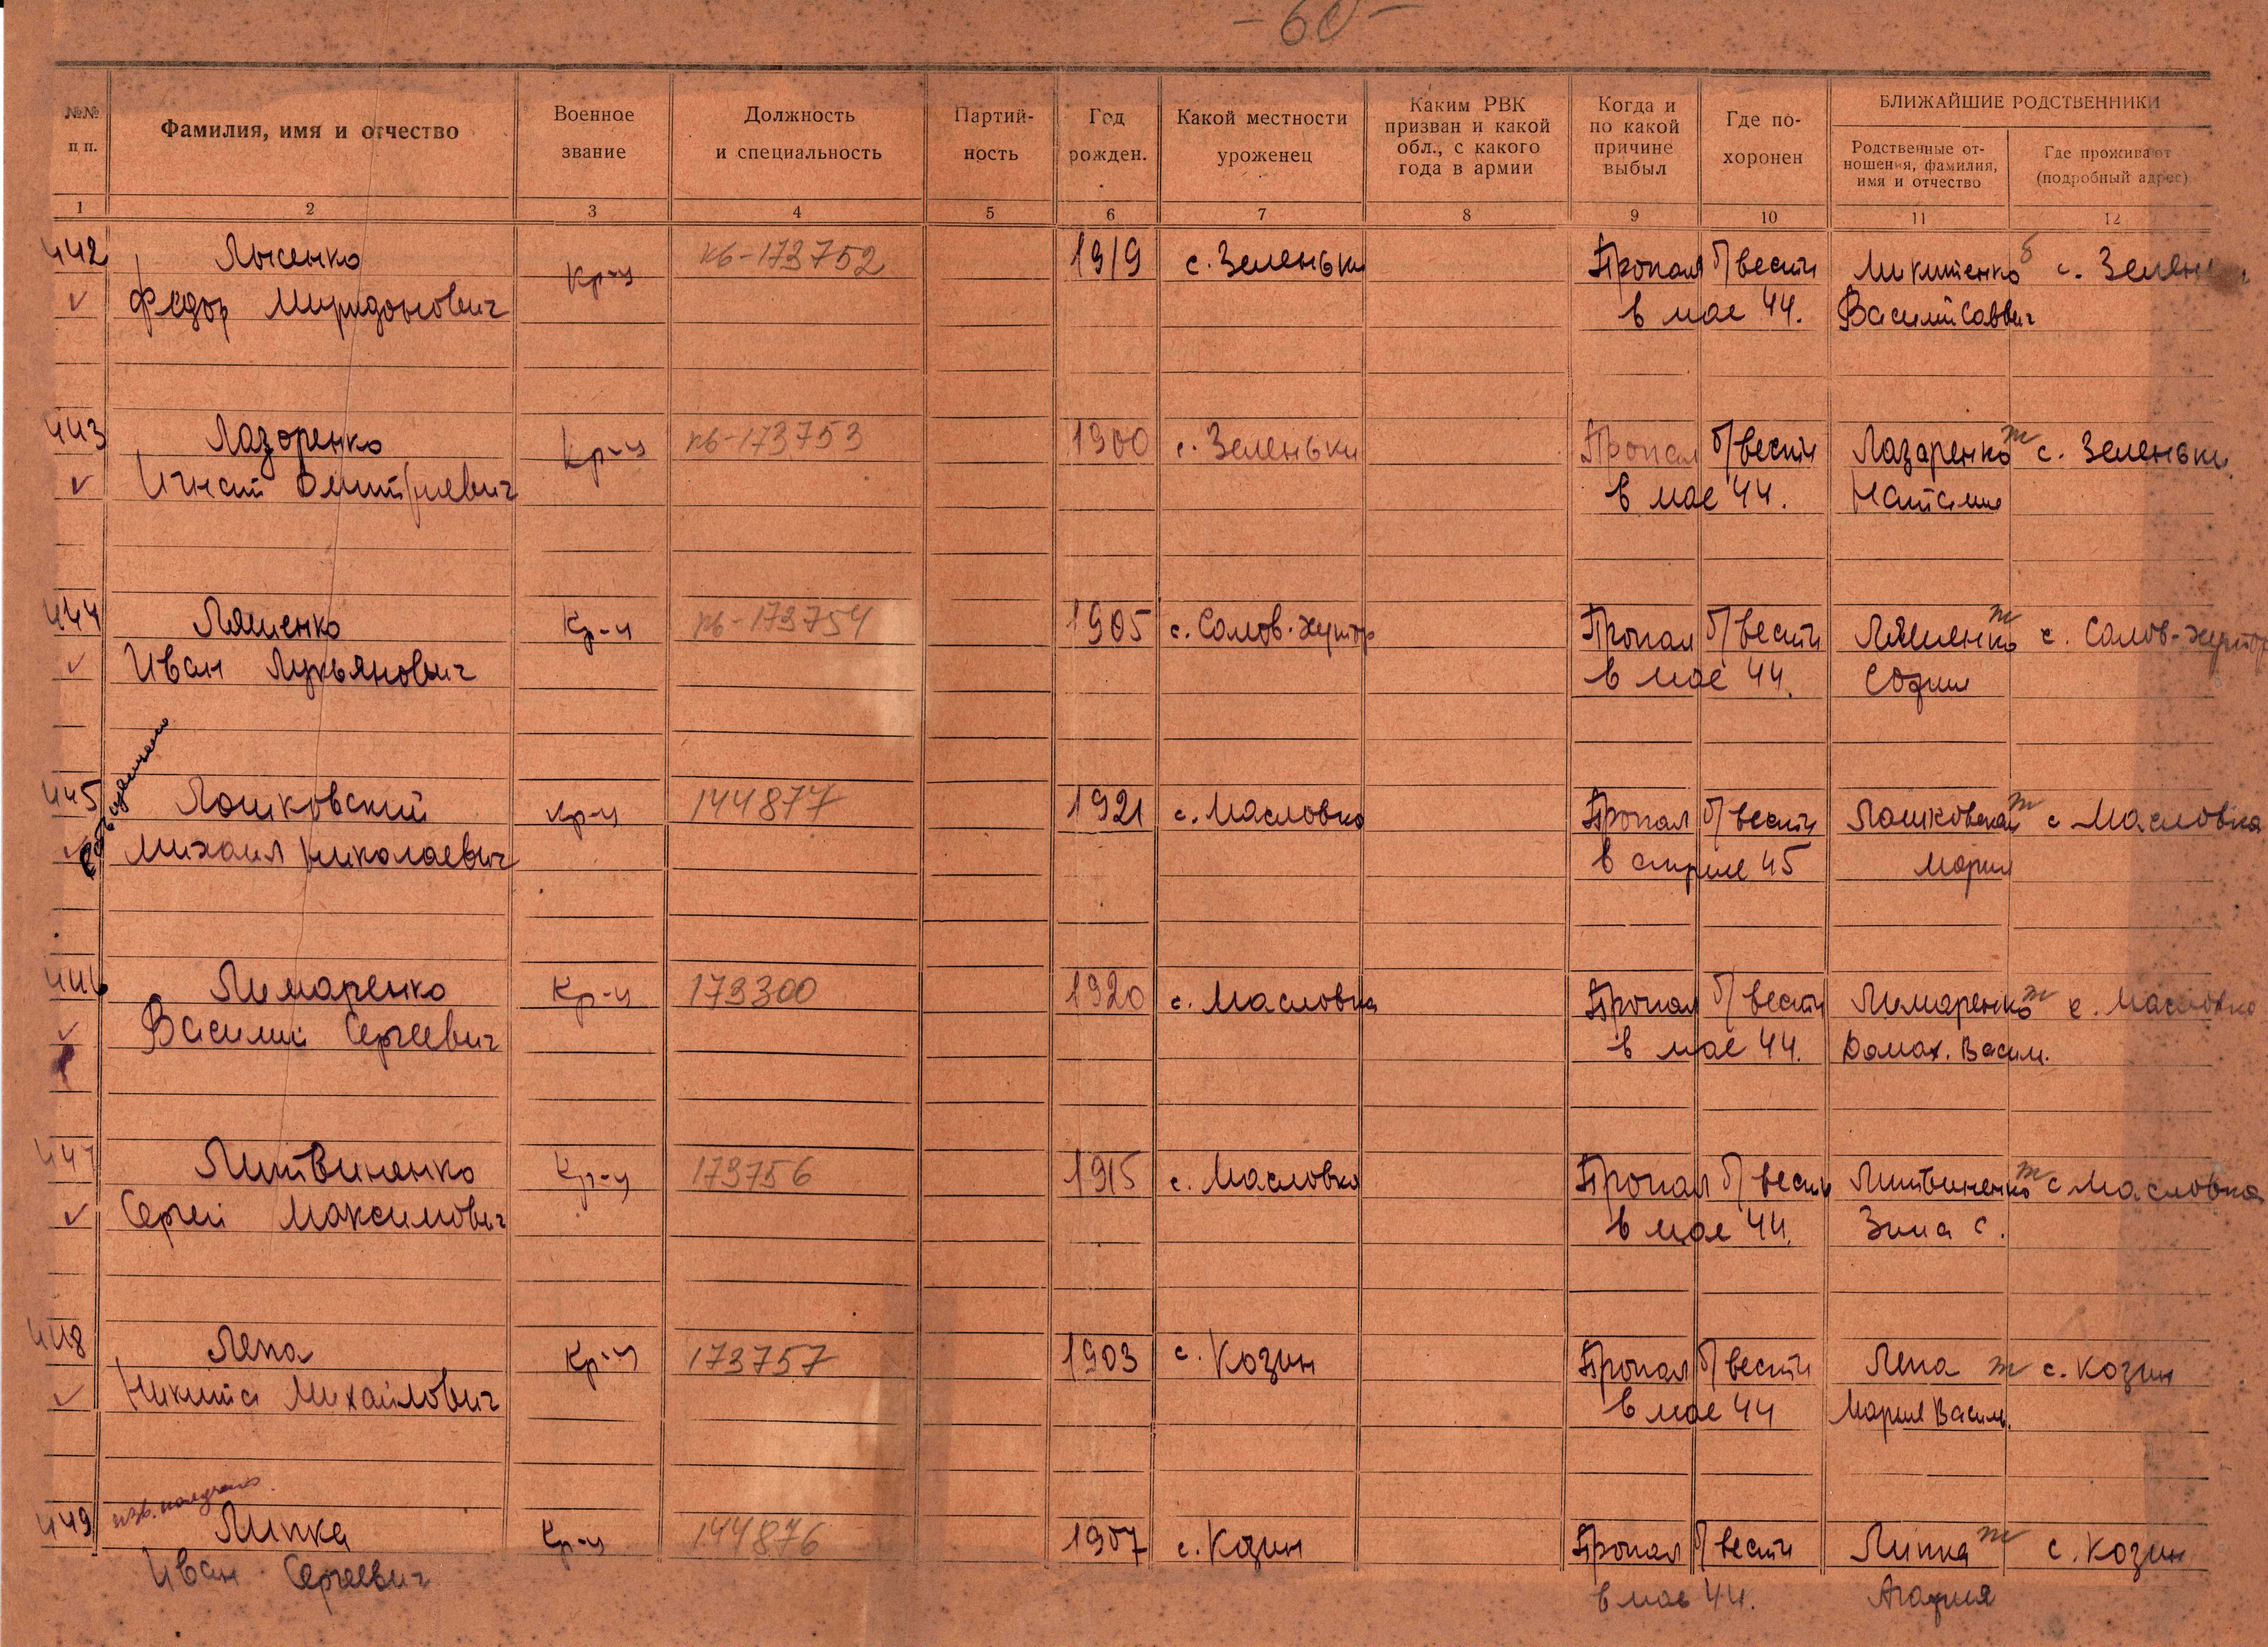 - 60 -
БЛИЖАЙШИЕ РОДСТВЕННИКИ
№№ п п.
Фамилия, имя и отчество
Военное звание
Должность и специальность
Партий-ность
Год рожден.
Какой местности уроженец
Каким РВК призван и какой обл., с какого года в армии
Когда и по какой причине выбыл
Где по-хоронен
Родственные от-ношения, фамилия, имя и отчество
Где проживают (подробный адрес)
1 2 3 4 5 6 7 8 9 10 11 12
442 Лысенко кр-ц пв-173752 1919 с. Зеленьки Пропал б/вести Микитенко б с. Зелень
Федор Миридонович в мае 44. Василий Саввич
443 Лазоренко Кр-ц пв-173753 1900 с. Зеленьки Пропал б/вести Лазаренко ж с. Зеленьки
Игнат Дмитриевич в мае 44. Наталия
444 Ляшенко Кр-ц пв-173754 1905 с. Салов-хутор Пропал б/вести Ляшенко ж с. Салов-хутор
Иван Лукьянович в мае 44. София
445 Лошковский кр-ц 144877 1921 с. Масловка Пропал б/вести Лошковская ж с Масловка
Михаил Николаевич в апреле 45 Мария
446 Лимаренко Кр-ц 173300 1920 с. Масловка Пропал б/вести Лимаренко ж с. Масловка
Василий Сергеевич в мае 44. Домах. Васил.
447 Литвиненко Кр-ц 173756 1915 с. Масловка Пропал б/вести Литвиненко ж с Масловка
Сергей Максимович в мае 44. Зина С.
448 Лепа Кр-ц 173757 1903 с. Козин Пропал б/вести Лепа ж с. Козин
Никита Михайлович в мае 44 Мария Васил.
изв. получено
449 Липка Кр-ц 144876 1907 с. Козин Пропал б/вести Липка ж с. Козин
Иван Сергеевич в мае 44. Агафия